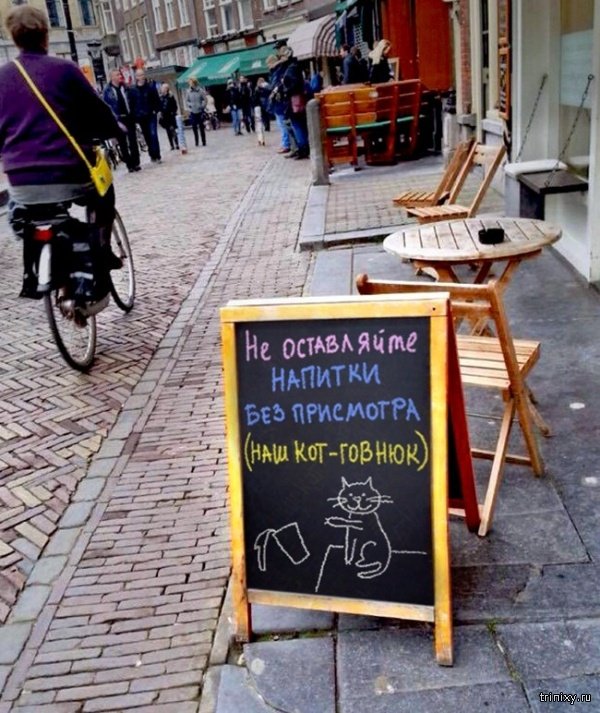 Не оставляйте
напитки
без присмотра
(наш кот-говнюк)
trinixy.ru